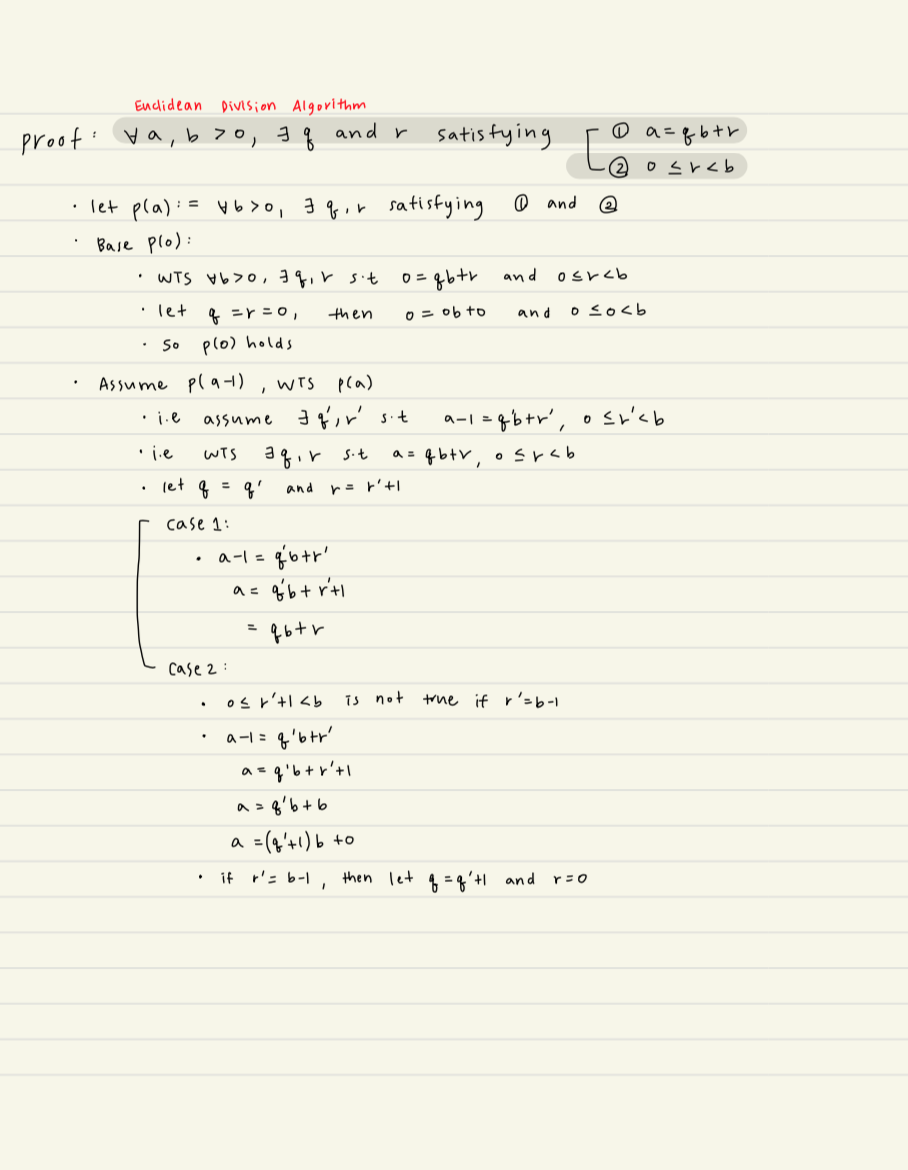 Euclidean Division Algorithm
proof: ∀a, b >0, ∃ q and r satisfying ① a=qb+r
② 0 ≤ r < b
· let p(a) := ∀b>0, ∃ q, r satisfying ① and ②
· Base p(0):
· WTS ∀b>0, ∃q, r s.t 0=qb+r and 0≤r<b
· let q =r=0, then 0 = 0b+0 and 0 ≤0<b
· So p(0) holds
· Assume p(a-1), WTS p(a)
· i.e assume ∃ q', r' s.t a-1 = q'b+r', 0 ≤r'<b
· i.e WTS ∃q, r s.t a= qb+r, 0 ≤ r < b
· let q = q' and r = r'+1
case 1:
· a-1 = q'b+r'
a = q'b + r'+1
= qb+r
case 2:
· 0≤ r'+1 <b is not true if r'=b-1
· a-1= q'b+r'
a = q'b+r'+1
a = q'b+b
a =(q'+1)b +0
· if r'= b-1, then let q=q'+1 and r=0